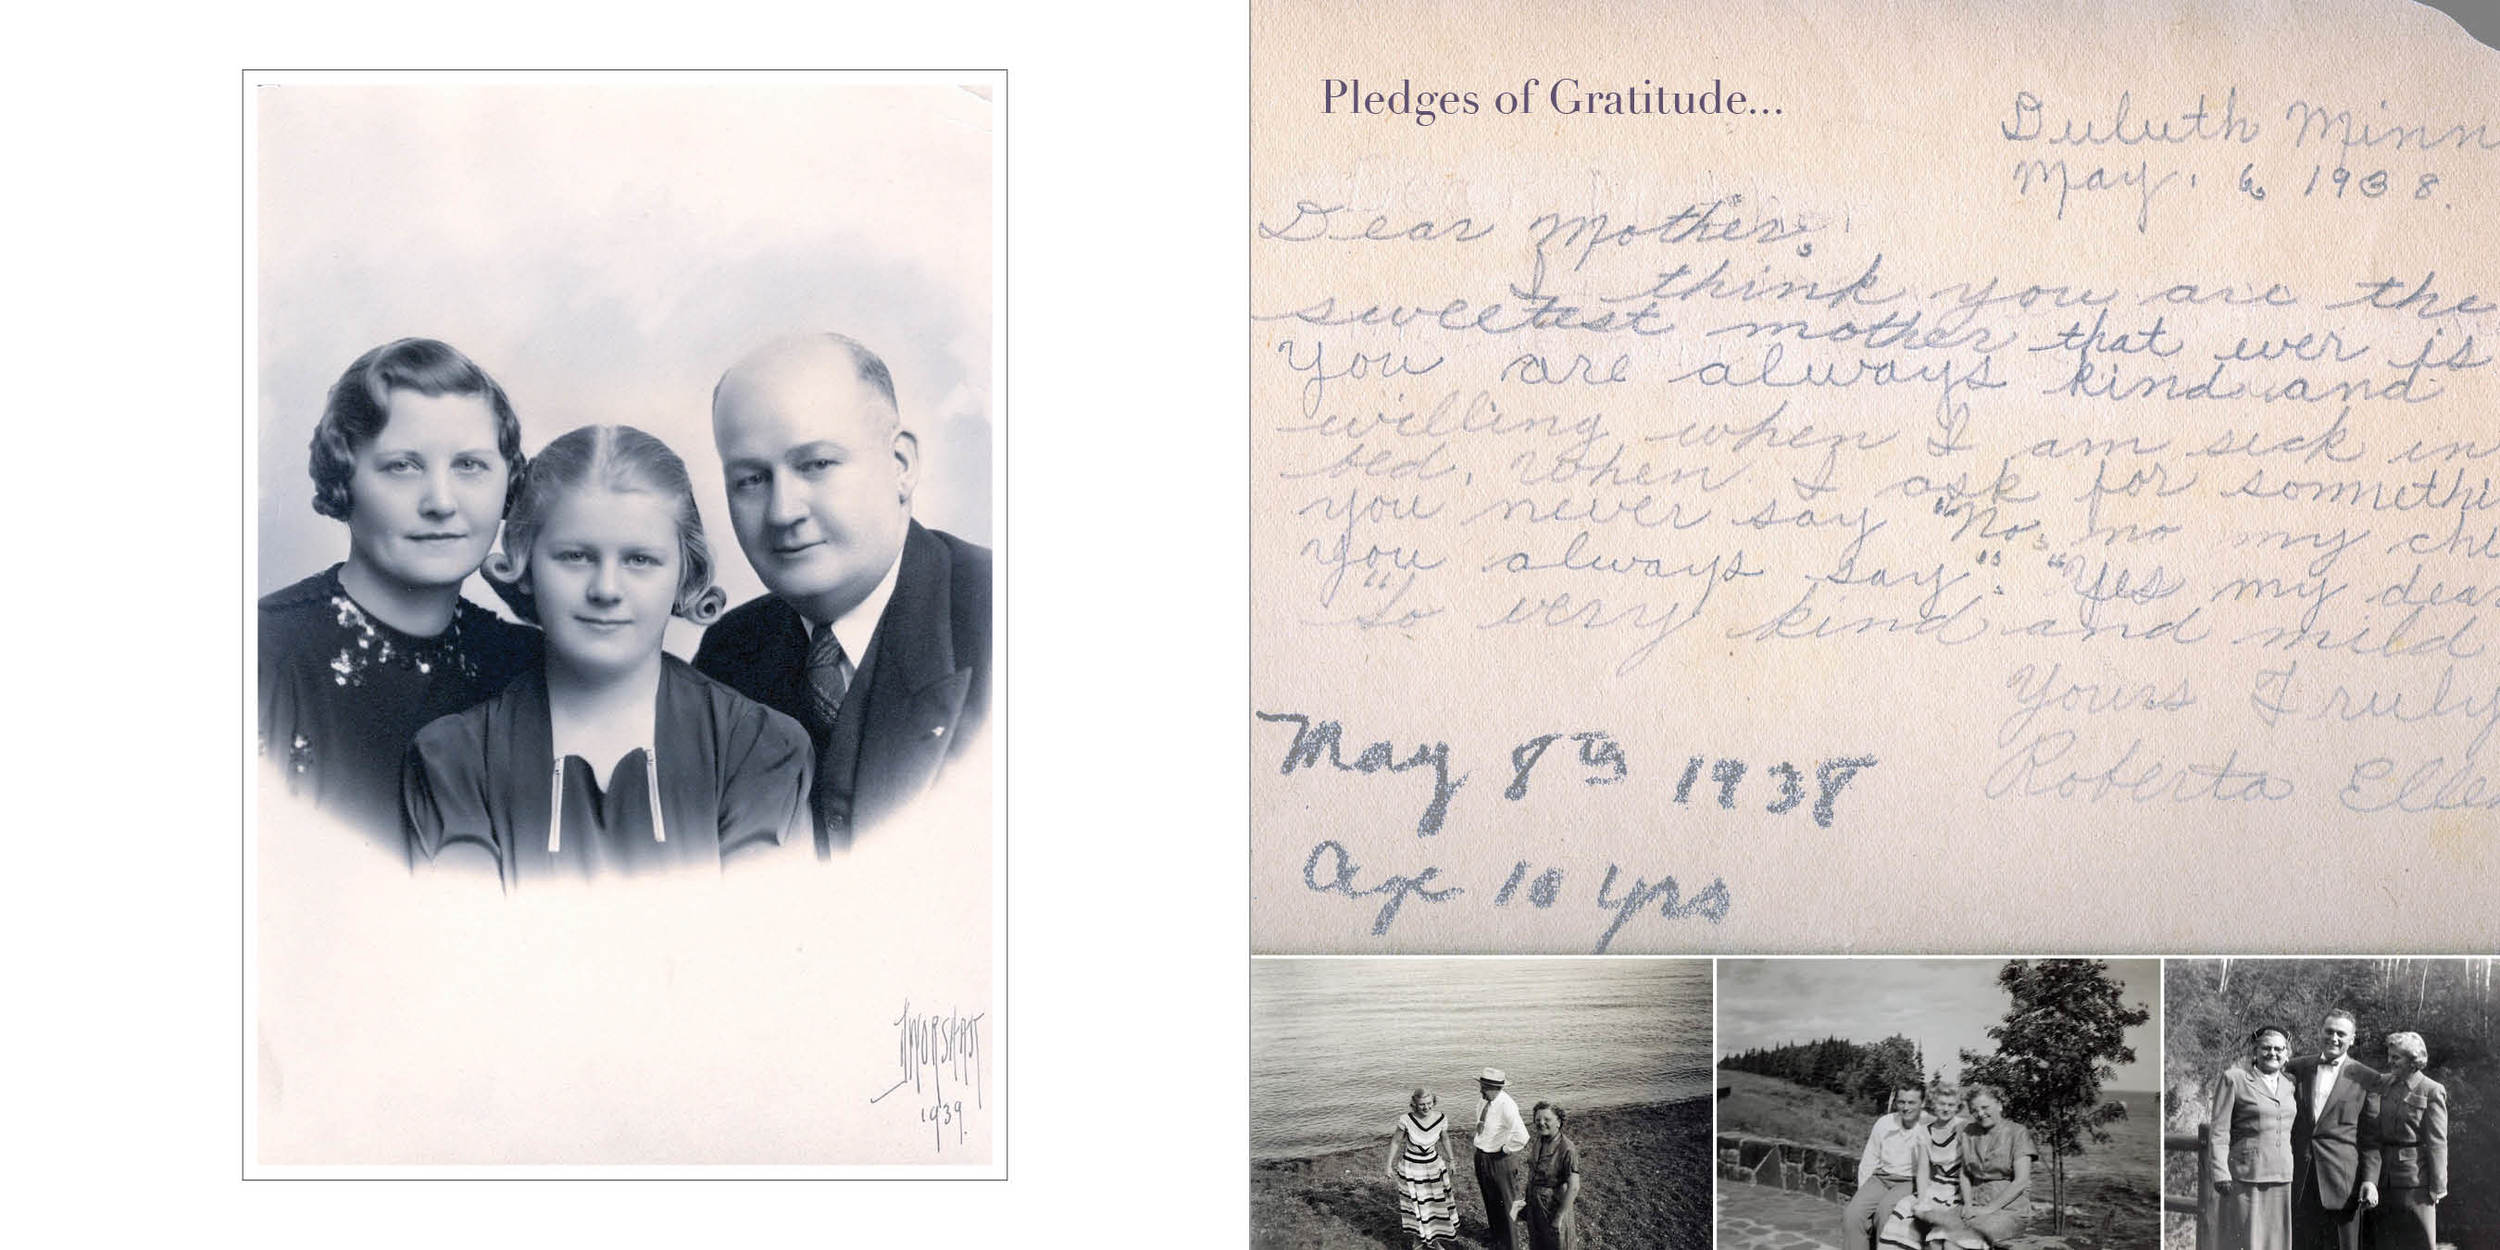 DWORSHAK
1939.
Pledges of Gratitude...
Duluth Minn
May. 6 1938.
Dear Mother,
I think you are the
sweetest mother that ever is
You are always kind and
willing when I am sick in
bed, when I ask for somethi
you never say "No, no my chi
you always say", "Yes my dear
"So very kind and mild
Yours Truly
Roberta Ellen
May 8th 1938
Age 10 yrs